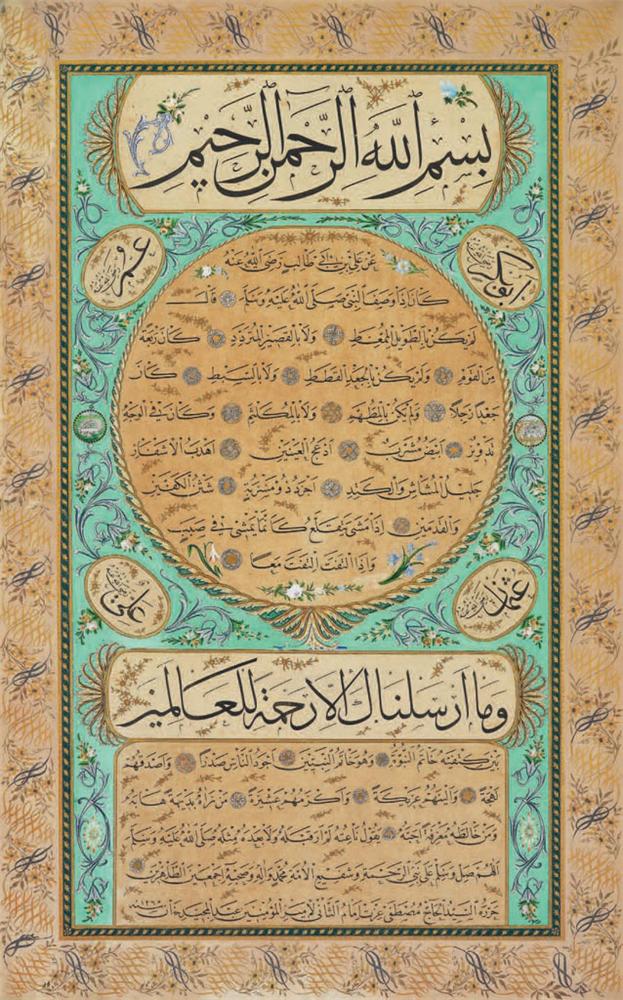 بسم الله الرحمن الرحيم
ابو بكر رضى الله عنه
عمر رضى الله عنه
عن على بن ابى طالب رضى الله عنه
كان اذا وصف النبى صلى الله عليه وسلم قال
لم يكن بالطويل الممغط ولا بالقصير المتردد كان ربعة
من القوم ولم يكن بالجعد القطط ولا بالسبط كان
جعدا رجلا ولم يكن بالمطهم ولا بالمكلثم وكان فى الوجه
تدوير ابيض مشرب ادعج العينين اهدب الاشفار
جليل المشاش والكتد اجرد ذو مسربة شثن الكفين
والقدمين اذا مشى يتقلع كانما يمشى فى صبب
واذا التفت التفت معا
عثمان رضى الله عنه
على رضى الله عنه
وما ارسلناك الا رحمة للعالمين
بين كتفيه خاتم النبوة وهو خاتم النبيين اجود الناس صدرا واصدقهم
لهجة والينهم عريكة واكرمهم عشيرة من رآه بديهة هابه
ومن خالطه معرفة احبه يقول ناعته لم ار قبله ولا بعده مثله صلى الله عليه وسلم
اللهم صل وسلم على نبى الرحمة وشفيع الامة محمد وآله وصحبه اجمعين الطاهرين
حرره السيد الحاج مصطفى عزت امام الثانى لامير المؤمنين عبد المجيد خان